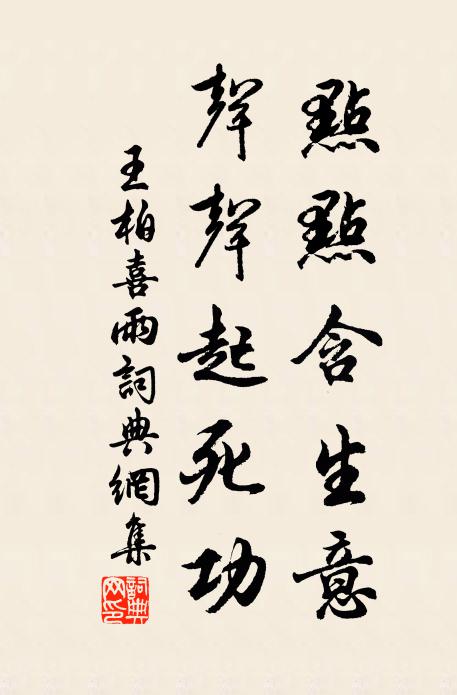 點點含生意
聲聲起死功
王柏喜雨詞典網集
詞典
网印